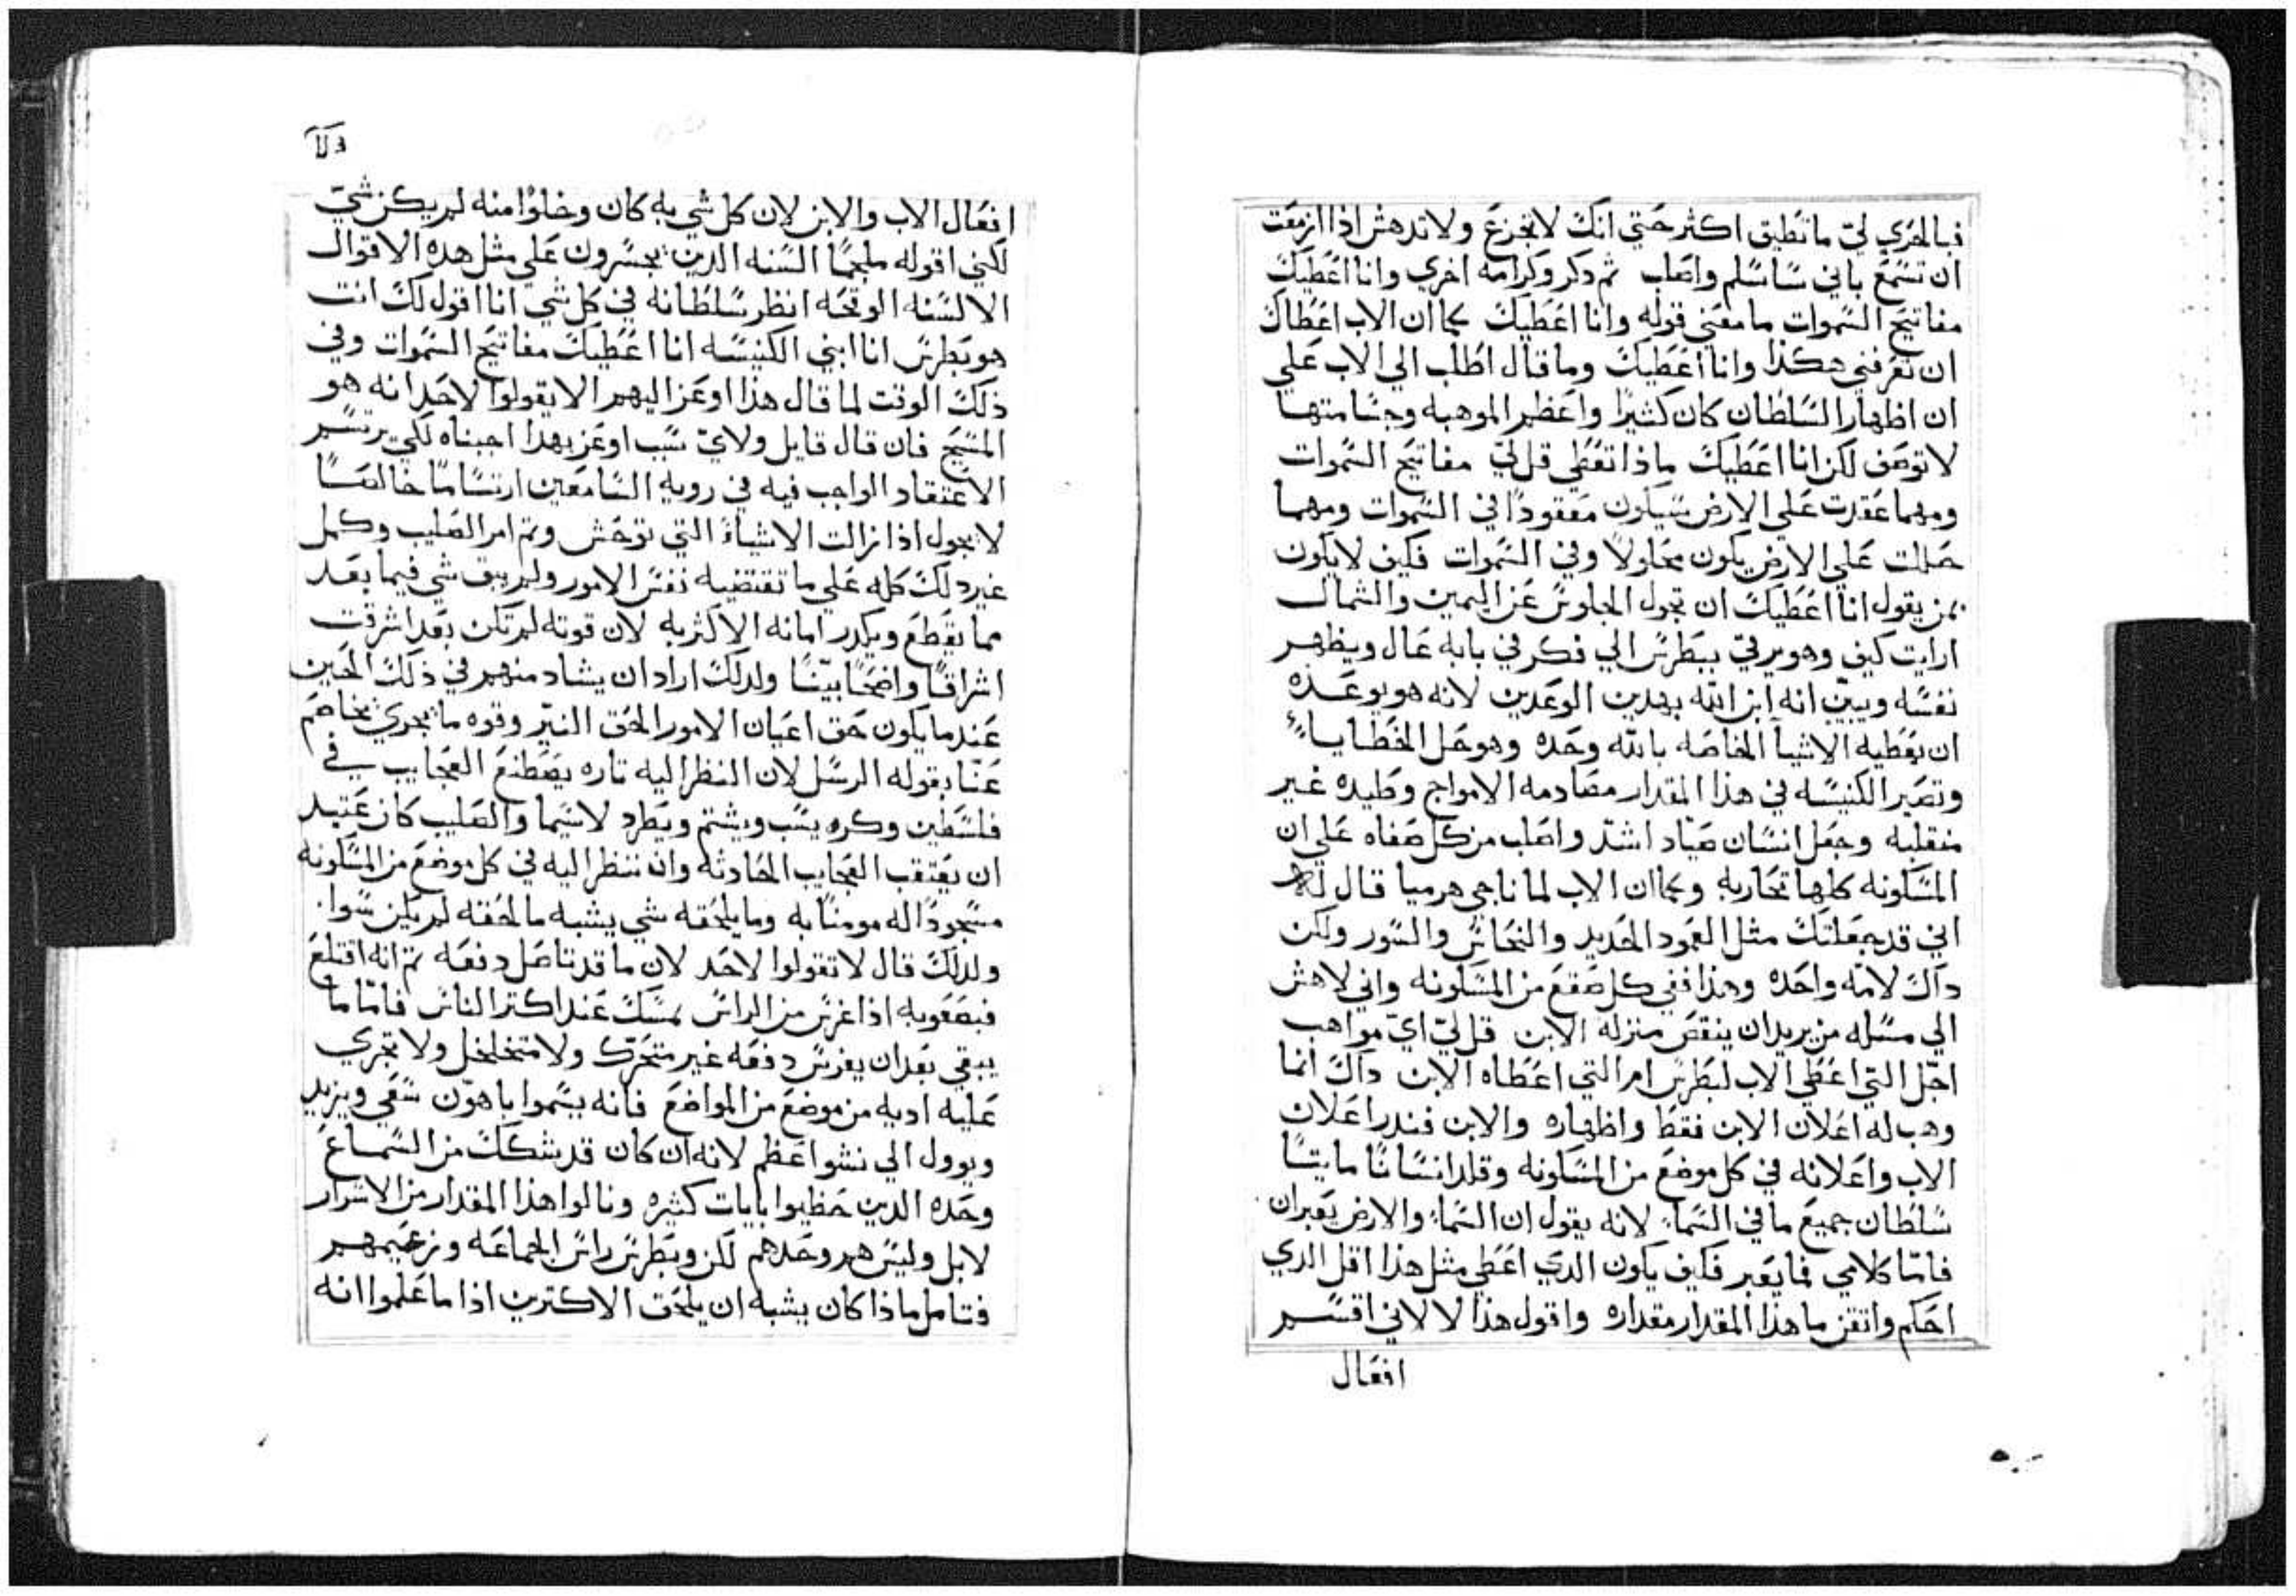 فبالحري لي ما تطيق اكثر حتي انك لا تجزع ولا تدهش اذا ازمعت
ان تسمع باني ساسلم واصلب ثم دكر وكرامه اخري وانا اعطيك
مفاتيح السموات ما معني قوله وانا اعطيك كما ان الاب اعطاك
ان تعرفني هكذا وانا اعطيك وما قال اطلب الي الاب علي
ان اظهار السلطان كان كثيرًا واعظم الموهبه وجسامتها
لا توصف لكن انا اعطيك ماذا تعطي قل لي مفاتيح السموات
ومهما عقدت علي الارض سيكون معقودًا في السموات ومهما
حللت علي الارض يكون محلولًا وفي السموات فكيف لا يكون
لمن يقول انا اعطيك ان تجول الجلوس عن اليمين والشمال
ارايت كيف وهو يرقي ببطرس الي فكر في بابه عال ويظهر
نفسه ويبيّن انه ابن الله بهدين الوعدين لانه هو يوعده
ان يعطيه الاشيآ الخاصه بالله وحده وهو حل الخطايا
وتصير الكنيسه في هذا المقدار مصادمه الامواج وطيده غير
منقلبه وجعل انسان صيّاد اشدّ واصلب من كل صفاه علي ان
المسكونه كلها تحاربه وكما ان الاب لما ناجي هرميا قال له
اني قد جعلتك مثل العمود الحديد والنحاس والسور ولكن
داك لامّه واحده وهذا ففي كل صقع من المسكونه واني لاهش
الي مسله من يريد ان ينقص منزله الابن قل لي ايّ مواهب
اجّل التي اعطي الاب لبطرس ام التي اعطاه الابن داك انما
وهب له اعلان الابن فقط واظهاره والابن فندر اعلان
الاب واعلانه في كل موضع من المسكونه وقلد انسانًا مايتًا
سلطان جميع ما في السمآ لانه يقول ان السمآ والارض يعبران
فامّا كلامي فما يعبر فكيف يكون الدي اعطي مثل هذا اقل الدي
احكم واتقن ما هذا المقدار مقداره واقول هذا لا لاني اقسم
افعال
افعال الاب والابن لان كل شي به كان وخلوًا منه لم يكن شي
لكني اقوله ملجمًا السنه الدين يجسرون علي مثل هده الاقوال
الالسنه الوقحه انظر سلطانه في كل شي انا اقول لك انت
هو بطرس انا ابني الكنيسه انا اعطيك مفاتيح السموات وفي
ذلك الوقت لما قال هذا اوعز اليهم الا يقولوا لاحد انه هو
المسيح فان قال قايل ولايّ سبب اوعز بهدا اجبناه لكي يرتسم
الاعتقاد الواجب فيه في رويه السامعين ارتسامًا خالصًا
لا يحول اذا زالت الاشياء التي توحش وتم امر الصليب وكمل
غير دلك كله علي ما تقتضيه نفس الامور ولم يبق شي فيما بعد
مما يقطع ويكدر امانه الاكثر به لان قوته لم تكن بعد اشرقت
اشراقًا واضحًا بيّنًا ولدلك اراد ان يشاد منهم في ذلك الحين
عندما يكون حق اعيان الامور الحق النيّر وقوه ما يجري يخاصم
عنّا بقوله الرسل لان النظر اليه تاره يصطنع العجايب في
فلسطين وكره يسب ويشتم ويطرد لا سيما والصليب كان عتيد
ان يعتقب العجايب الحادثه وان ننظر اليه في كل موضع من المسكونه
مسجودًا له مومنًا به وما يلحقه شي يشبه ما لحقه لم يكن سوا
ولدلك قال لا تقولوا لاحد لان ما قد تاصل دفعه تم انه اقتلع
فبصعوبه اذا غرس من الراس يمسك عند اكتر الناس فامّا ما
يبقي بعد ان يغرس دفعه غير متحرّك ولا متخلخل ولا تجري
عليه اديه من موضع من المواضع فانه يسموا باهوّن سعي ويزيد
ويوول الي نشو اعظم لانه ان كان قد شكك من السماع
وحده الدين حظيوا بايات كثيره ونالوا هذا المقدار من الاسرار
لا بل وليس هم وحدهم لكن وبطرس راس الجماعه وزعيمهم
فتامل ماذا كان يشبه ان يلحق الاكترين اذا ما علموا انه